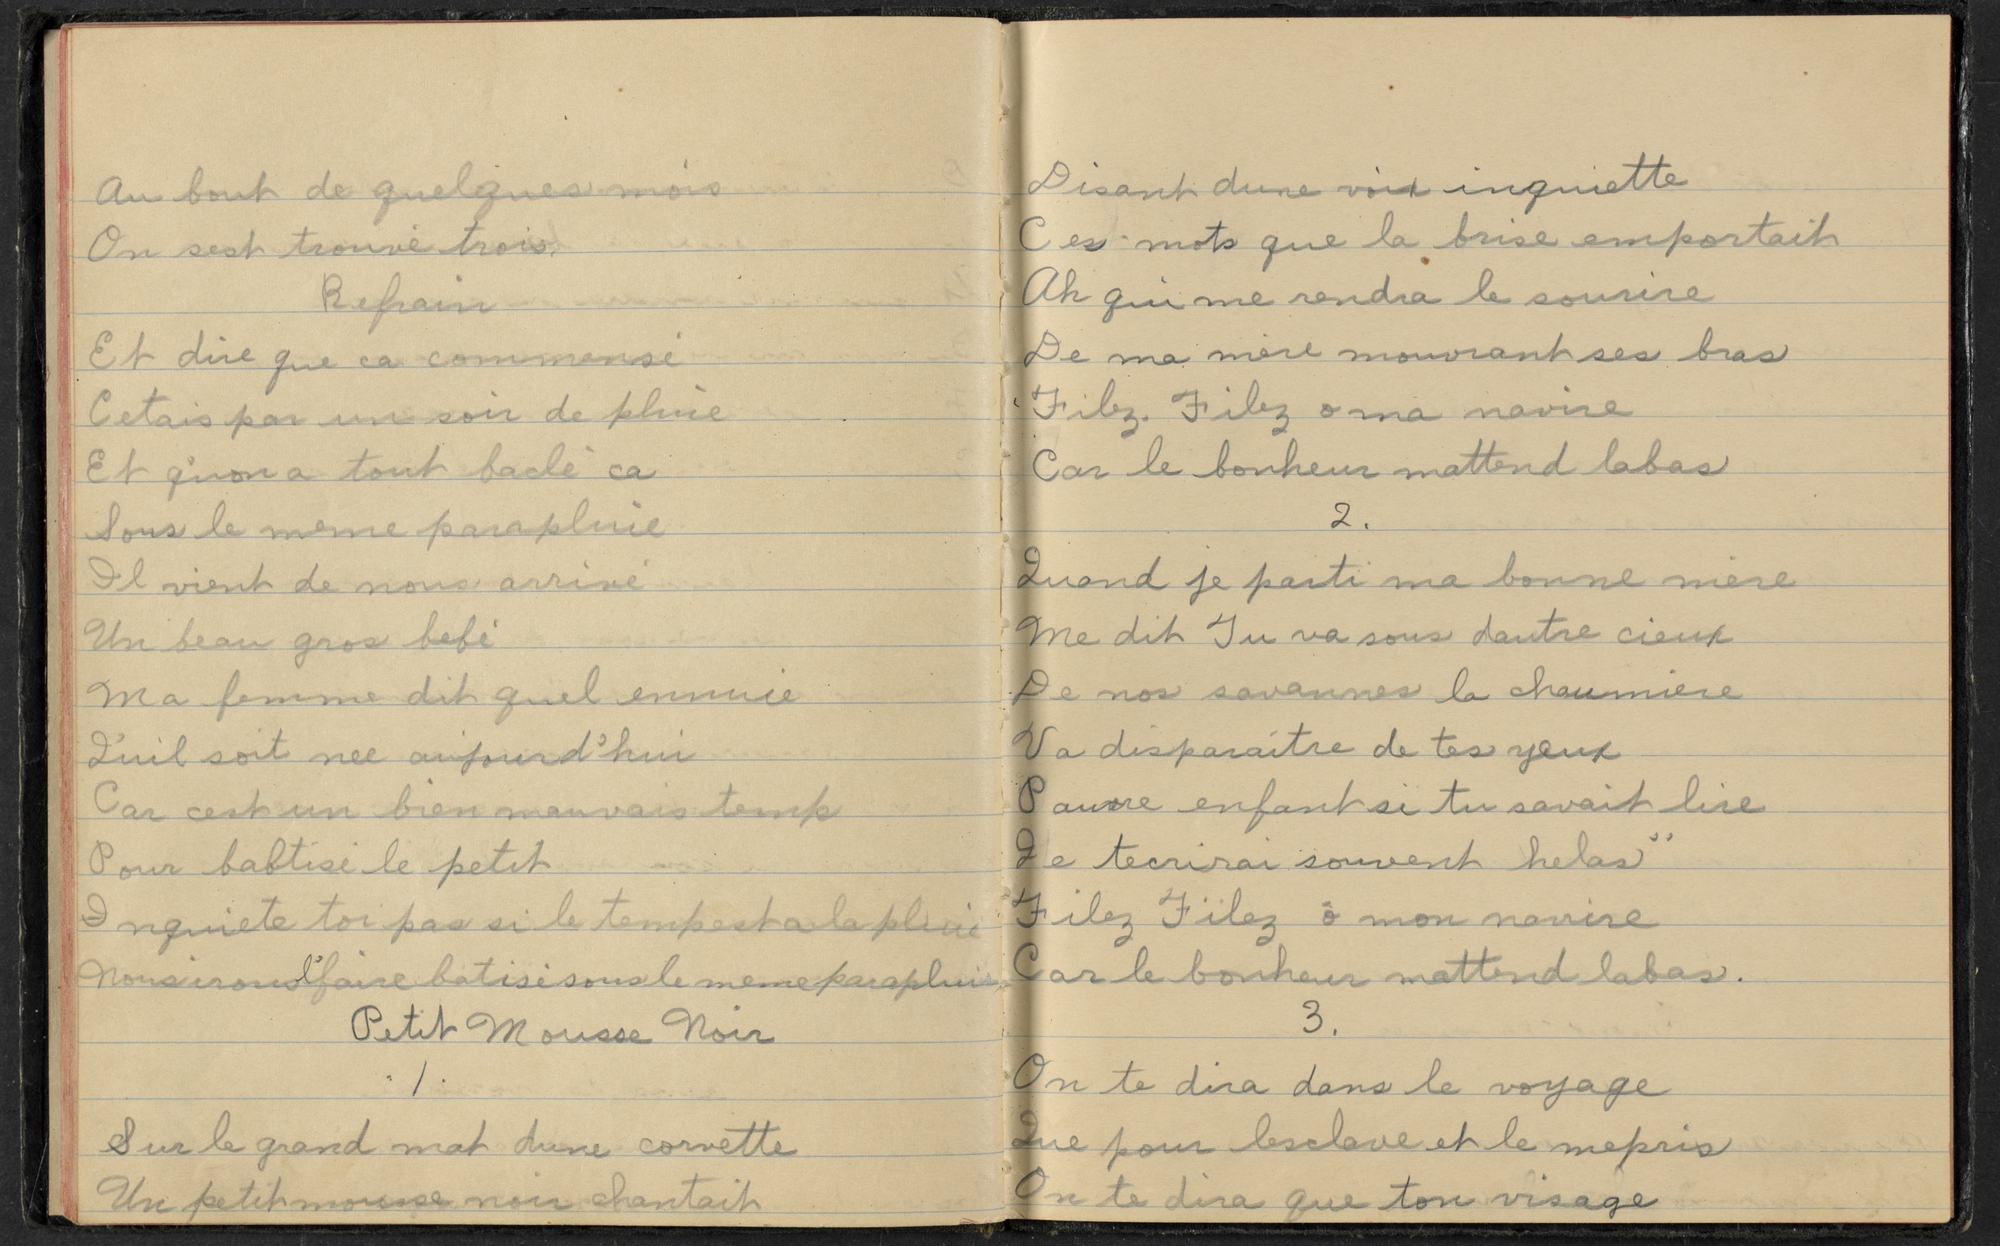 Au bout de quelques mois
On sest trouvé trois.
Refrain
Et dire que ca commensé
Cetais par un soir de pluie
Et qu'on a tout baclé ca
Sous le meme parapluie
Il vient de nous arrivé
Un beau gros bebé
Ma femme dit quel ennuie
Qu'il soit nee aujourd'hui
Car cest un bien mauvais temp
Pour babtisé le petit
Inquiete toi pas si le temp est a la pluie
Nous irons l'faire batisé sous le meme parapluie
Petit Mousse Noir
1.
Sur le grand mat dune corvette
Un petit mousse noir chantait
Disant dune voix inquiette
Ces mots que la brise emportait
Ah qui me rendra le sourire
De ma mère mouvrant ses bras
Filez. Filez o ma navire
Car le bonheur mattend labas
2.
Quand je parti ma bonne mère
Me dit Tu va sous dautre cieux
De nos savannes la chaumiere
Va disparaitre de tes yeux
Pauvre enfant si tu savait lire
Je tecrirai souvent helas"
Filez Filez ô mon navire
Car le bonheur mattend labas.
3.
On te dira dans le voyage
Que pour lesclave et le mepris
On te dira que ton visage